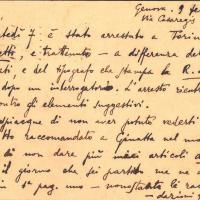 Genova. 9 fe
Via Casaregis
tedì 7 è stato arrestato a Torin
etti, e trattenuto — a differenza del
ti, e del tipografo che stampa la R.
dopo un interrogatorio. L'arresto rient
ontro gli elementi suggestivi.
spiacque di non aver potuto vederti
Ho raccomandato a Gianatta nel m
di non dare più miei articoli a
il giorno che sei partito me ne a
in 1ª pag. uno — nonostante le rac